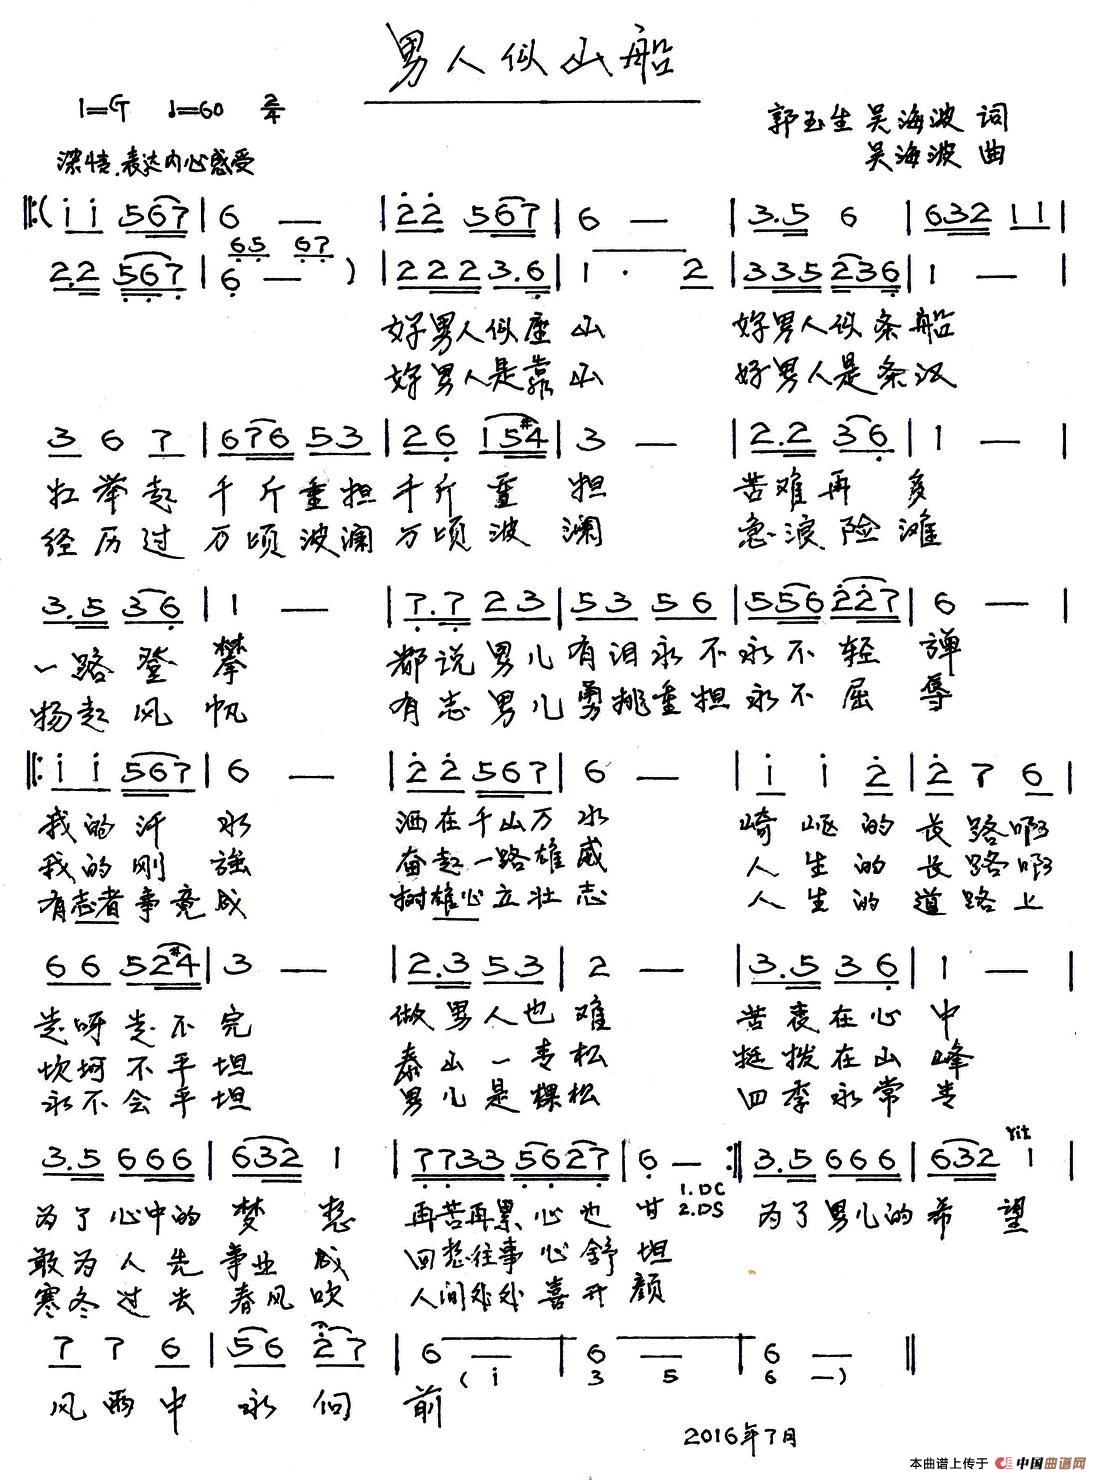 男人似山船
1=G ♩=60 2/4
郭玉生 吴海波 词
深情.表达内心感受
吴海波 曲
‖:( i i 5 6 7 | 6 — | 2 2 5 6 7 | 6 — | 3.5 6 | 6 3 2 1 1 |
6 5 6 7
2 2 5 6 7 | 6 — ) | 2 2 2 3.6 | 1 · 2 | 3 3 5 2 3 6 | 1 — |
好男人似座山 好男人似条船
好男人是靠山 好男人是条汉
3 6 7 | 6 7 6 5 3 | 2 6 1 5 #4 | 3 — | 2.2 3 6 | 1 — |
扛举起千斤重担千斤重担 苦难再多
经历过万顷波澜万顷波澜 急浪险滩
3.5 3 6 | 1 — | 7.7 2 3 | 5 3 5 6 | 5 5 6 2 2 7 | 6 — |
一路登攀 都说男儿有泪永不永不轻弹
扬起风帆 有志男儿勇挑重担永不屈辱
‖: i i 5 6 7 | 6 — | 2 2 5 6 7 | 6 — | i i 2 | 2 7 6 |
我的汗水 洒在千山万水 崎岖的长路啊
我的刚强 奋起一路雄威 人生的长路啊
有志者事竟成 树雄心立壮志 人生的道路上
6 6 5 2 #4 | 3 — | 2.3 5 3 | 2 — | 3.5 3 6 | 1 — |
走呀走不完 做男人也难 苦衷在心中
坎坷不平坦 泰山一青松 挺拨在山峰
永不会平坦 男儿是棵松 四季永常青
rit
3.5 6 6 6 | 6 3 2 1 | 7 7 3 3 5 6 2 7 | 6 — :‖ 3.5 6 6 6 | 6 3 2 1 |
1.DC
2.DS
为了心中的梦想 再苦再累心也甘 为了男儿的希望
敢为人先事业成 回想往事心舒坦
寒冬过去春风吹 人间处处喜开颜
7 7 6 | 5 6 2 7 | 6 — | 6 — | 6 — ‖
( i 3 5 6 —)
风雨中永向前
2016年7月
本曲谱上传于 中国曲谱网